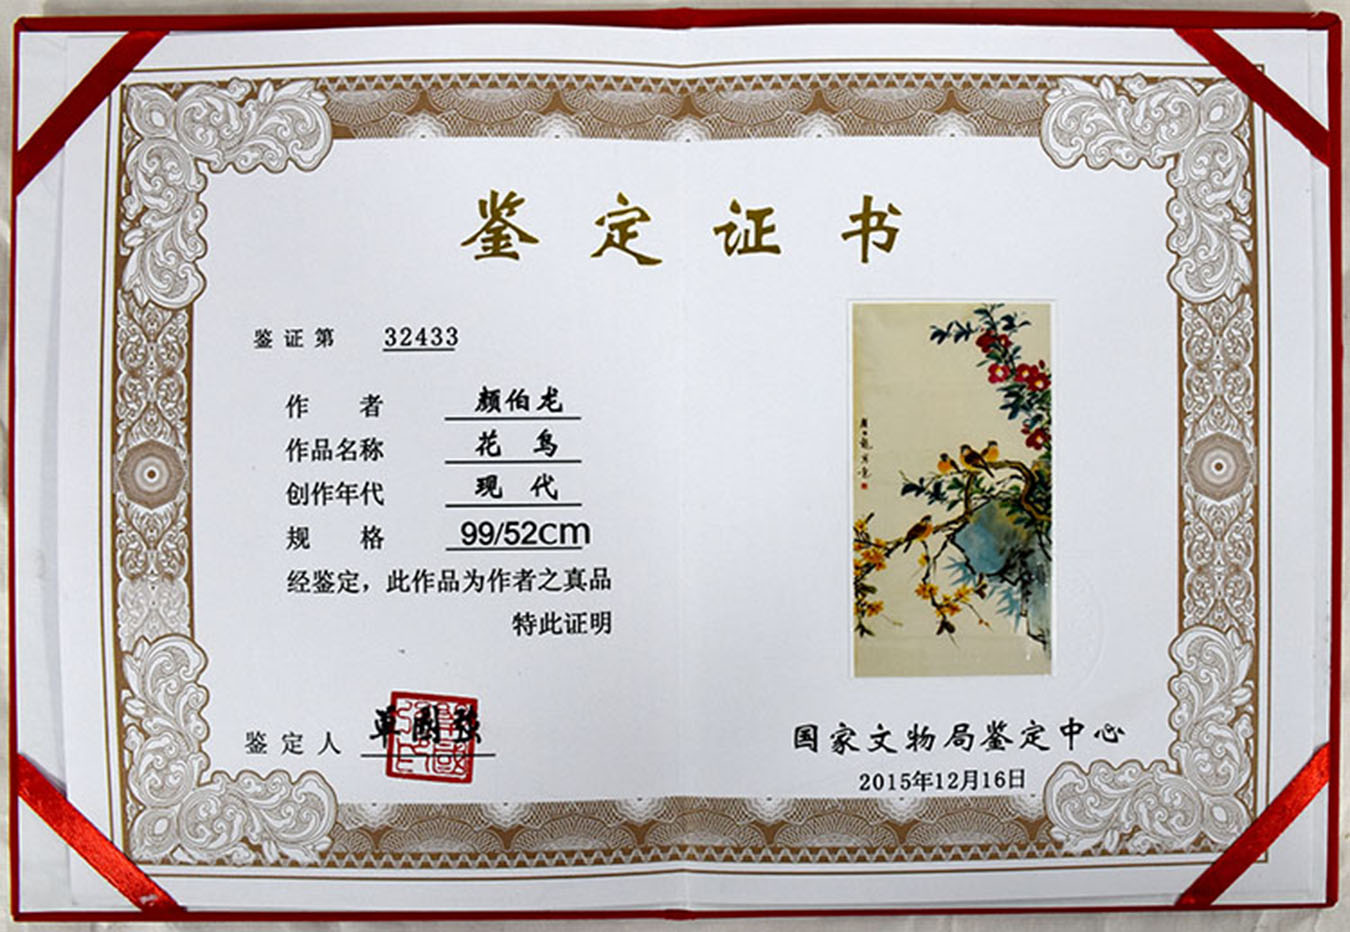 鉴定证书
鉴证第 32433
作者 颜伯龙
作品名称 花鸟
创作年代 现代
规格 99/52cm
经鉴定，此作品为作者之真品
特此证明
鉴定人 单国强
国家文物局鉴定中心
2015年12月16日